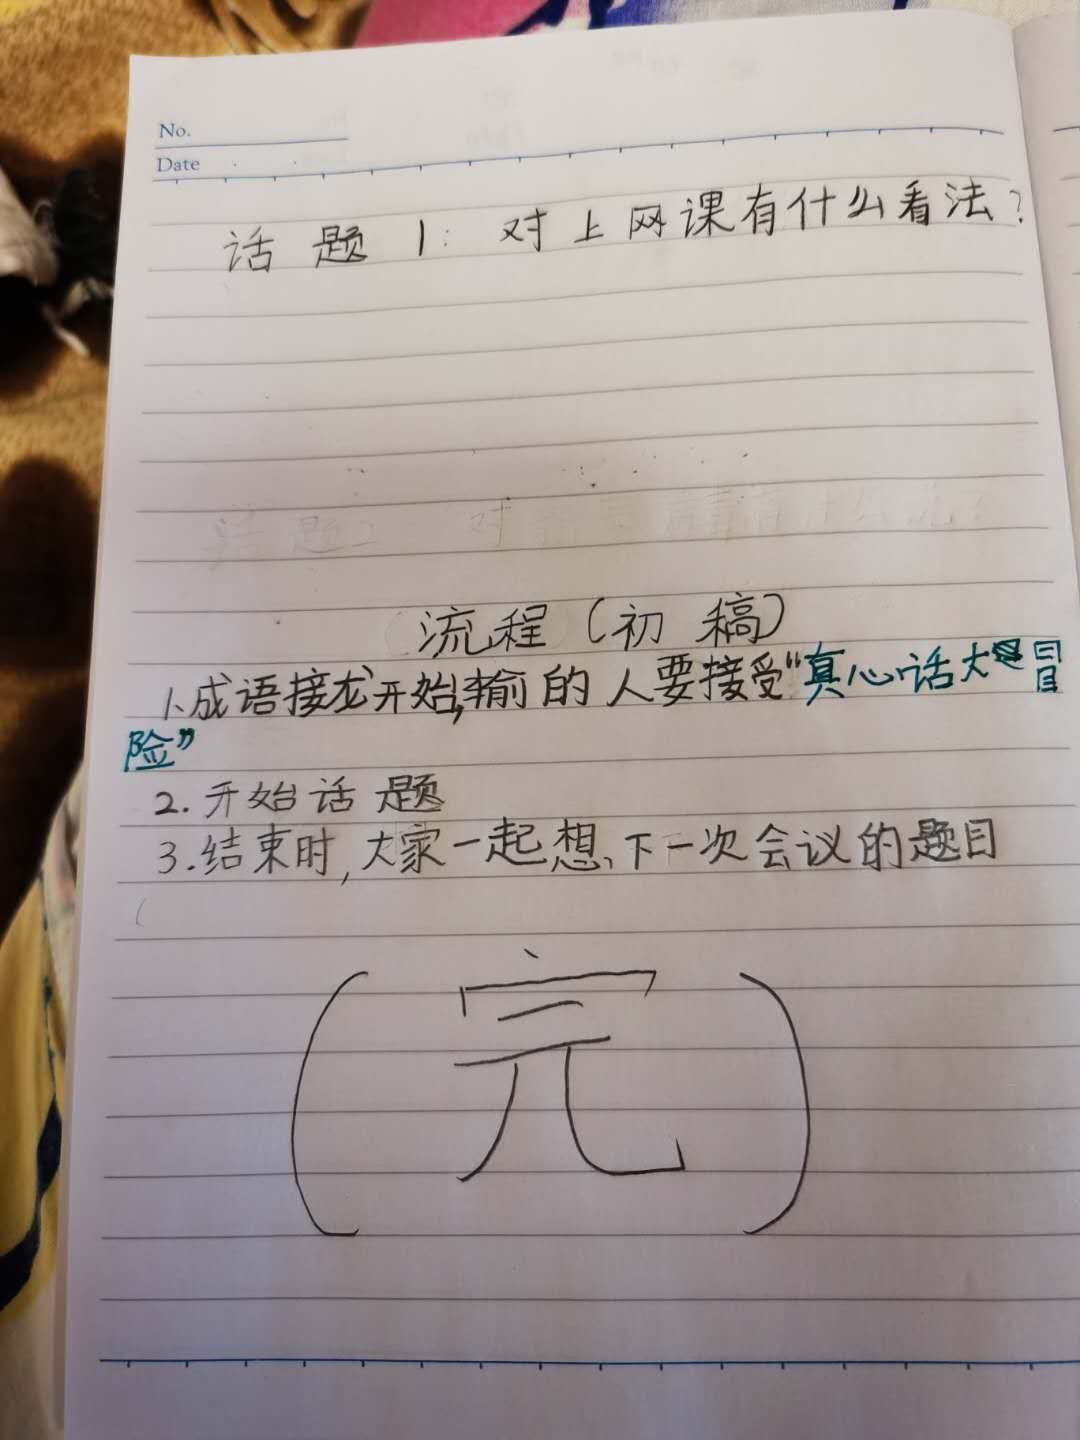 No.
Date
话题1:对上网课有什么看法?
话题2 对
流程(初稿)
1.成语接龙开始,输的人要接受“真心话大冒
险”
2.开始话题
3.结束时,大家一起想、下一次会议的题目
(完)